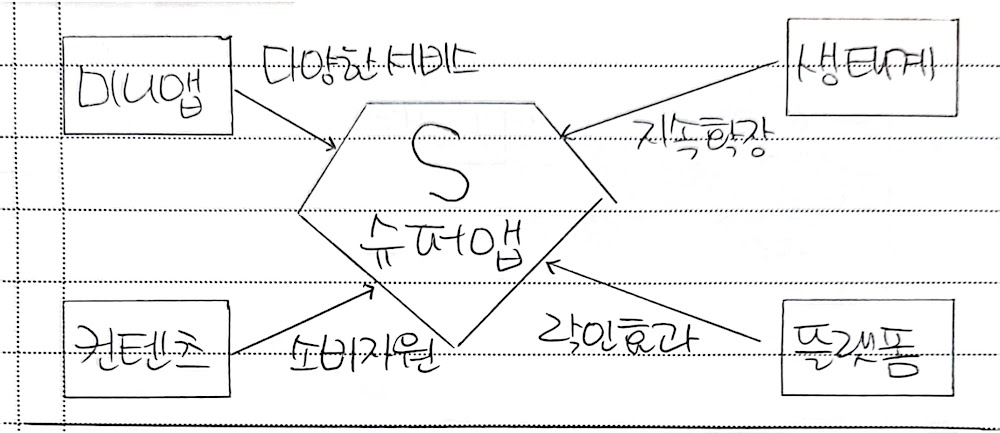 미니앱
다양한 서비스
생태계
지속확장
S
슈퍼앱
컨텐츠
소비자원
락인효과
플랫폼